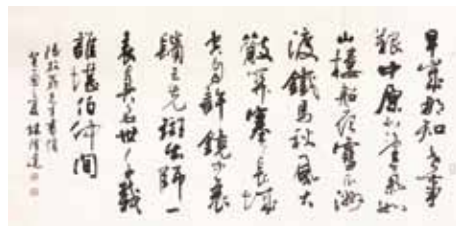 早歲那知世事
艱中原北望氣如
山樓船夜雪瓜洲
渡鐵馬秋風大
散關塞上長城
空自許鏡中衰
鬢已先斑出師一
表真名世千載
誰堪伯仲間
陸放翁先生書憤